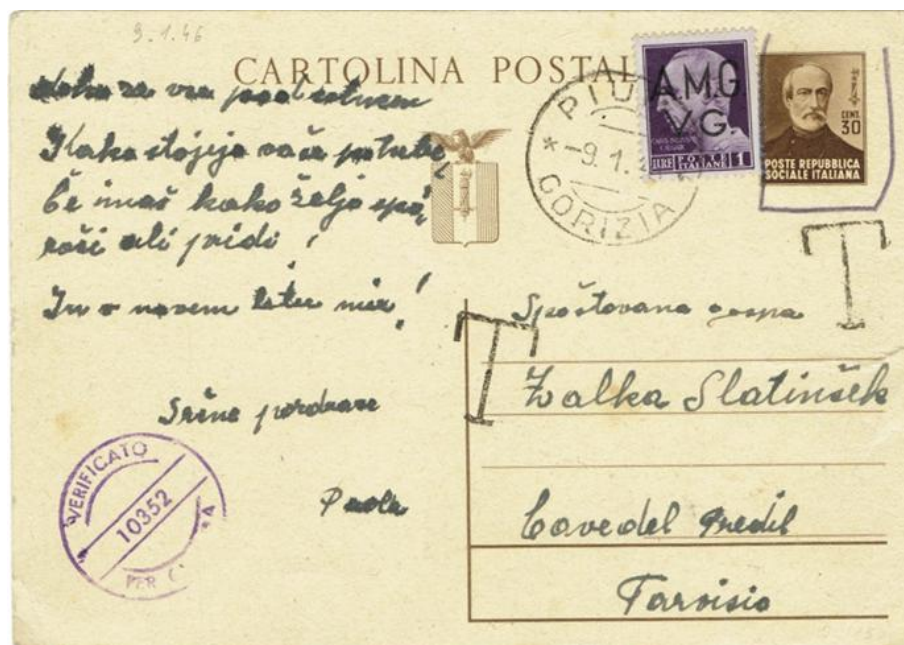 9.1.46
CARTOLINA POSTAL
A.M.G
V.G.
LIRE POSTE ITALIANE 1
CENT. 30
POSTE REPUBBLICA
SOCIALE ITALIANA
PIU
* -9.1.
GORIZIA
za vse
Kako stojijo vaše
Če imaš kako željo
ali pridi!
In v novem letu mir!
Srčne pozdrave
Paola
VERIFICATO
10352
PER C A
T
T
Spoštovana gospa
Zalka Slatinšek
Cave del Predil
Tarvisio